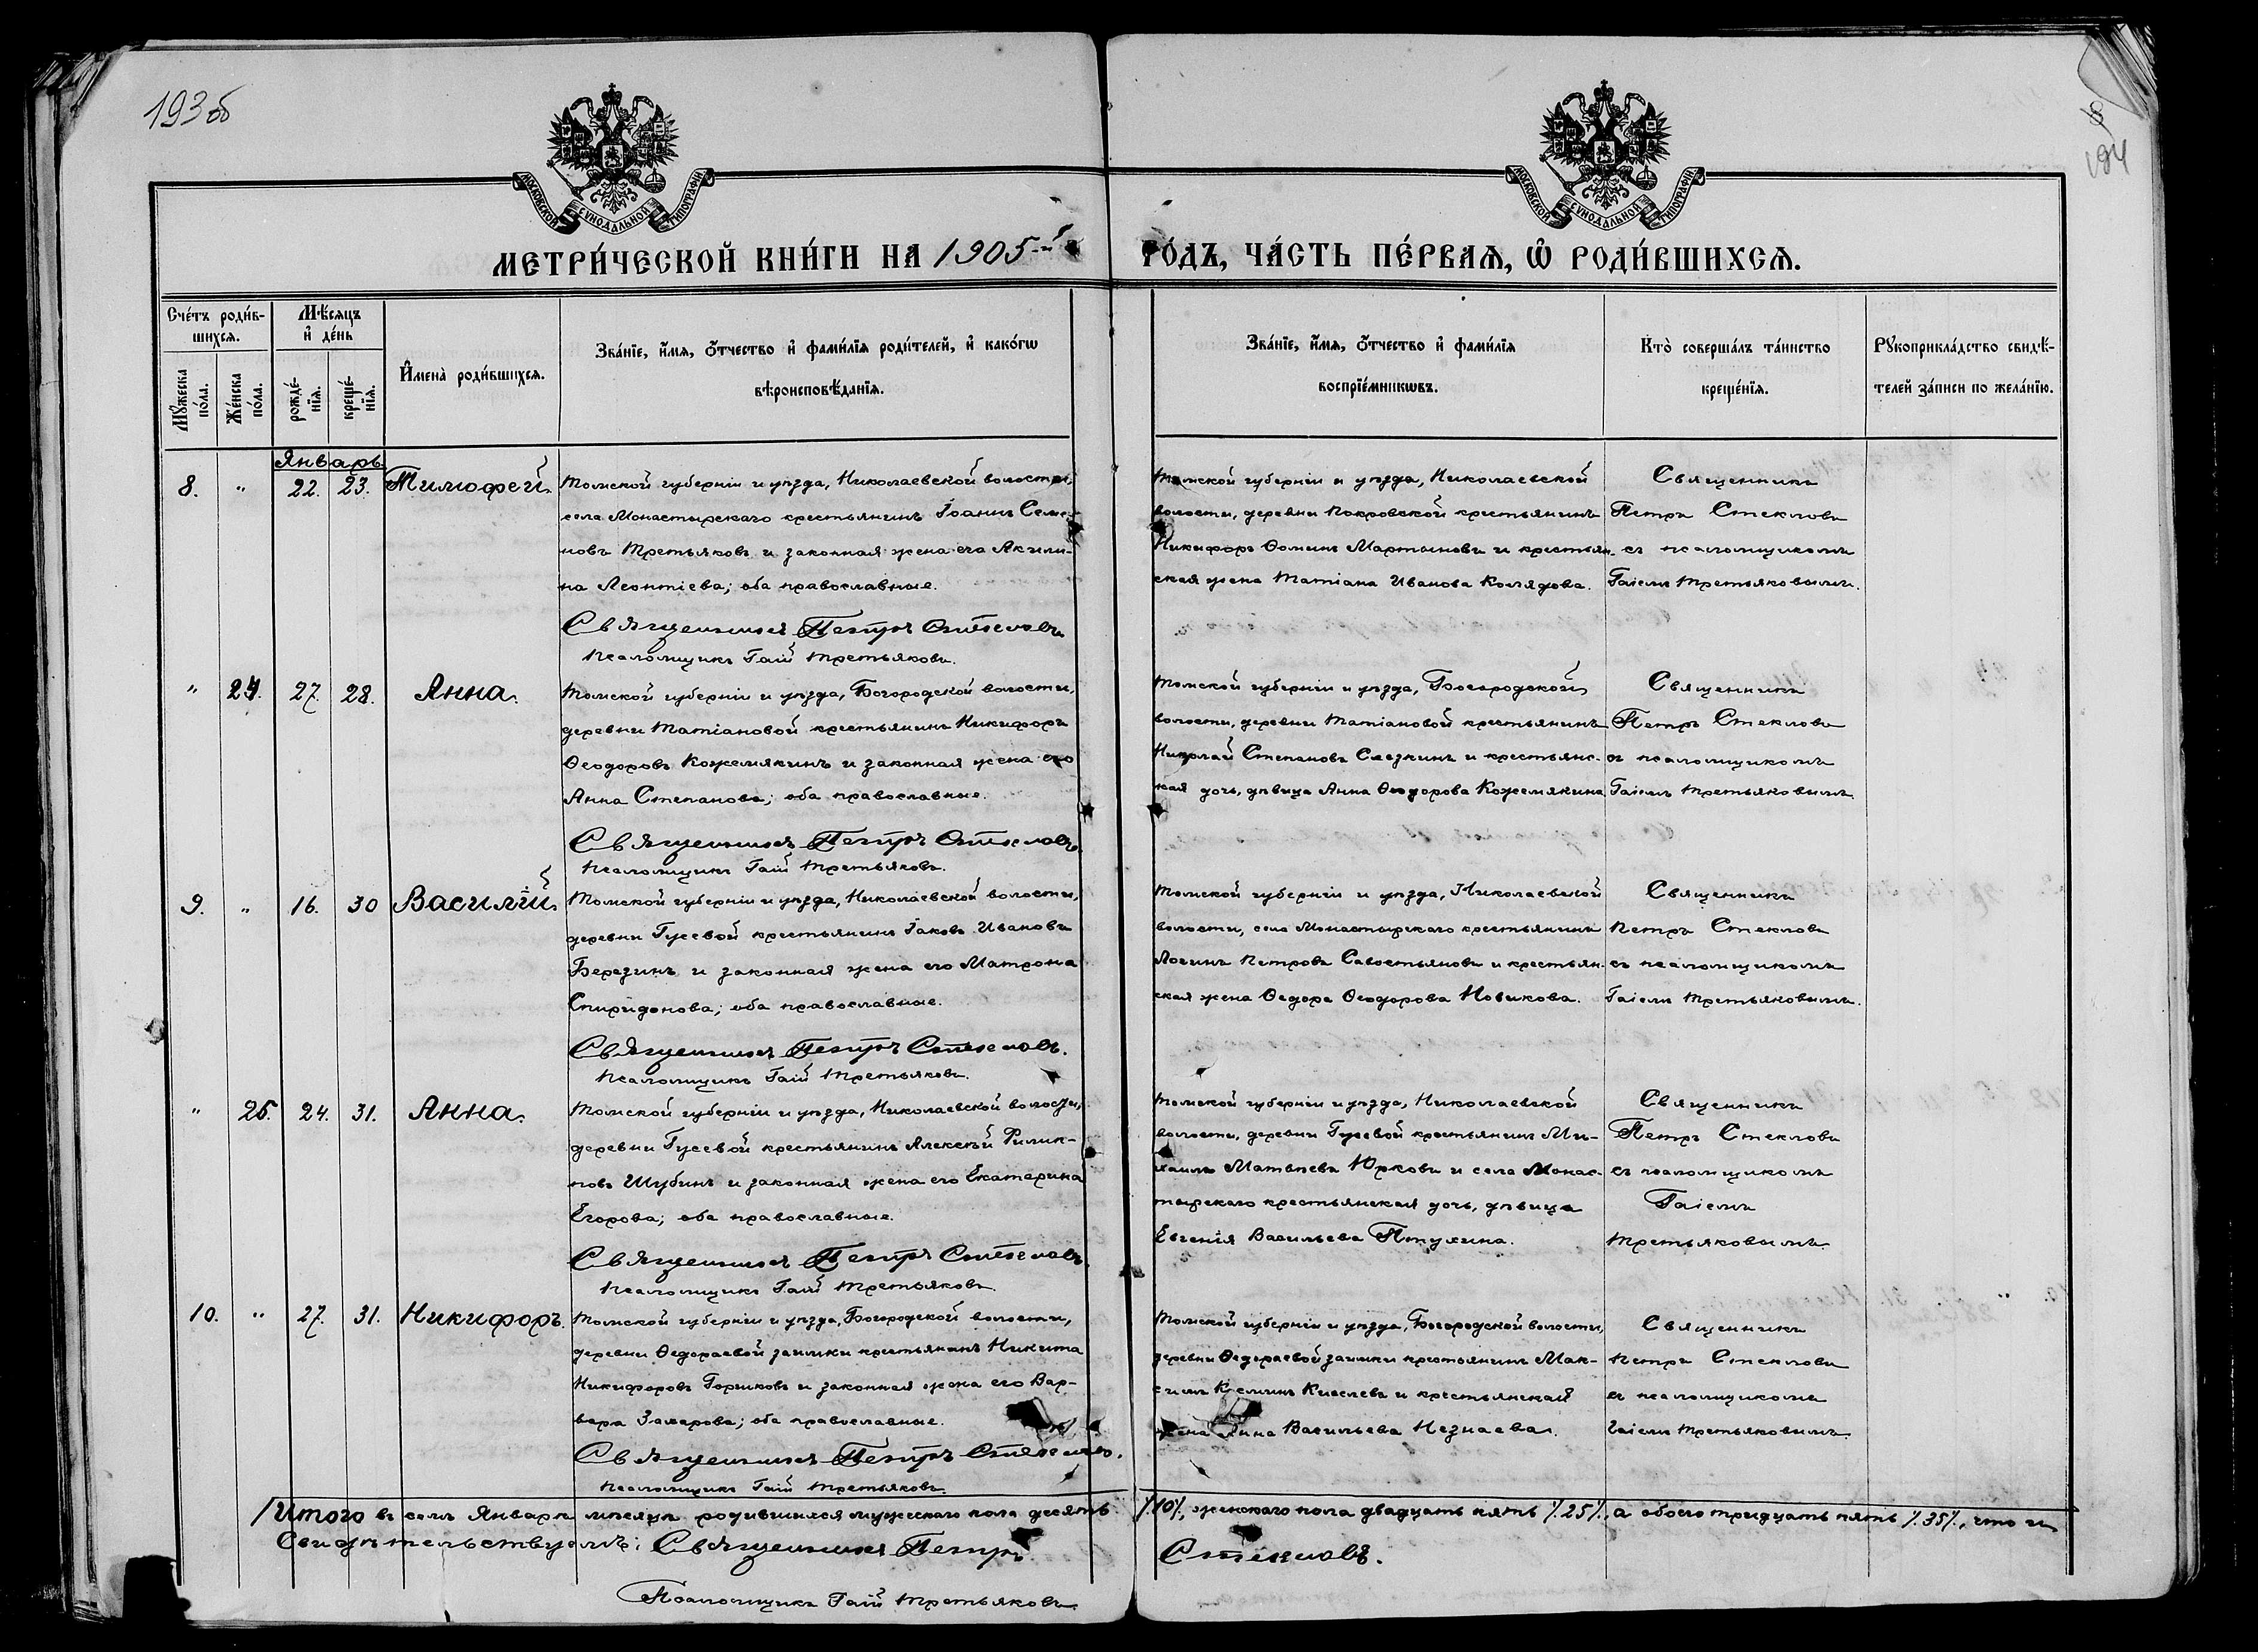 193об
8
194
МОСКОВСКОЙ СѴНОДАЛЬНОЙ ТИПОГРАФІИ
МОСКОВСКОЙ СѴНОДАЛЬНОЙ ТИПОГРАФІИ
МЕТРИ́ЧЕСКОЙ КНИ́ГИ НА 1905-й ГО́ДЪ, ЧА́СТЬ ПЕ́РВАѦ, Ѽ РОДИ́ВШИХСѦ.
Сче́тъ роди́в-
шихсѧ.
Мѣ́сѧцъ
и҆ де́нь
Мꙋ́жеска
по́ла.
Же́нска
по́ла.
рожде́-
нїѧ.
креще́-
нїѧ.
И҆мена̀ роди́вшихсѧ.
Зва́нїе, и҆́мѧ, ѻ҆́тчество и҆ фами́лїѧ роди́телей, и҆ како́гѡ
вѣроисповѣ́данїѧ.
Зва́нїе, и҆́мѧ, ѻ҆́тчество и҆ фами́лїѧ
воспрїе́мникѡвъ.
Кто̀ соверша́лъ та́инство
креще́нїѧ.
Рꙋкоприкла́дство свидѣ́-
телей за́писи по жела́нїю.
Январь
8. " 22. 23. Тимофей.
Томской губерніи и уѣзда, Николаевской волости,
села Монастырскаго крестьянинъ Іоаннъ Семе-
новъ Третьяковъ и законная жена его Акили-
на Леонтіева; оба православные.
Священникъ Петръ Стекловъ
Псаломщикъ Гаій Третьяковъ.
Томской губерніи и уѣзда, Николаевской
волости, деревни Покровской крестьянинъ
Никифоръ Ѳоминъ Мартыновъ и крестьян-
ская жена Татіана Иванова Колядова.
Священникъ
Петръ Стекловъ
съ псаломщикомъ
Гаіемъ Третьяковымъ.
" 24. 27. 28. Анна.
Томской губерніи и уѣзда, Богородской волости,
деревни Татіановой крестьянинъ Никифоръ
Ѳеодоровъ Кожемякинъ и законная жена его
Анна Степанова; оба православные.
Священникъ Петръ Стекловъ.
Псаломщикъ Гаій Третьяковъ.
Томской губерніи и уѣзда, Богородской
волости, деревни Татіановой крестьянинъ
Николай Степановъ Слезкинъ и крестьянс-
кая дочь, дѣвица Анна Ѳеодорова Кожемякина
Священникъ
Петръ Стекловъ
съ псаломщикомъ
Гаіемъ Третьяковымъ.
9. " 16. 30 Василій.
Томской губерніи и уѣзда, Николаевской волости,
деревни Гусевой крестьянинъ Іаковъ Ивановъ
Березинъ и законная жена его Матрона
Спиридонова; оба православные.
Священникъ Петръ Стекловъ.
Псаломщикъ Гаій Третьяковъ.
Томской губерніи и уѣзда, Николаевской
волости, села Монастырскаго крестьянинъ
Логинъ Петровъ Савостьяновъ и крестьян-
ская жена Ѳедора Ѳеодорова Новикова.
Священникъ
Петръ Стекловъ
съ псаломщикомъ
Гаіемъ Третьяковымъ.
" 25. 24. 31. Анна.
Томской губерніи и уѣзда, Николаевской волости,
деревни Гусевой крестьянинъ Алексѣй Филип-
повъ Шубинъ и законная жена его Екатерина
Егорова; оба православные.
Священникъ Петръ Стекловъ.
Псаломщикъ Гаій Третьяковъ.
Томской губерніи и уѣзда, Николаевской
волости, деревни Гусевой крестьянинъ Ми-
хаилъ Матвѣевъ Юрковъ и села Монас-
тырскаго крестьянская дочь, дѣвица
Евгенія Васильева Птухина.
Священникъ
Петръ Стекловъ
съ псаломщикомъ
Гаіемъ
Третьяковымъ.
10. " 27. 31. Никифоръ.
Томской губерніи и уѣзда, Богородской волости,
деревни Ѳедораевой заимки крестьянинъ Никита
Никифоровъ Горшковъ и законная жена его Вар-
вара Захарова; оба православные.
Священникъ Петръ Стекловъ.
Псаломщикъ Гаій Третьяковъ.
Томской губерніи и уѣзда, Богородской волости,
деревни Ѳедораевой заимки крестьянинъ Мак-
симъ Киселевъ и крестьянская
жена Васильева Незнаева.
Священникъ
Петръ Стекловъ
съ псаломщикомъ
Гаіемъ Третьяковымъ.
Итого въ семъ Январѣ мѣсяцѣ родившихся мужескаго пола десять /10/, женскаго пола двадцать пять /25/, а обоего тридцать пять /35/, что и
Свидѣтельствуемъ: Священникъ Петръ Стекловъ.
Псаломщикъ Гаій Третьяковъ.